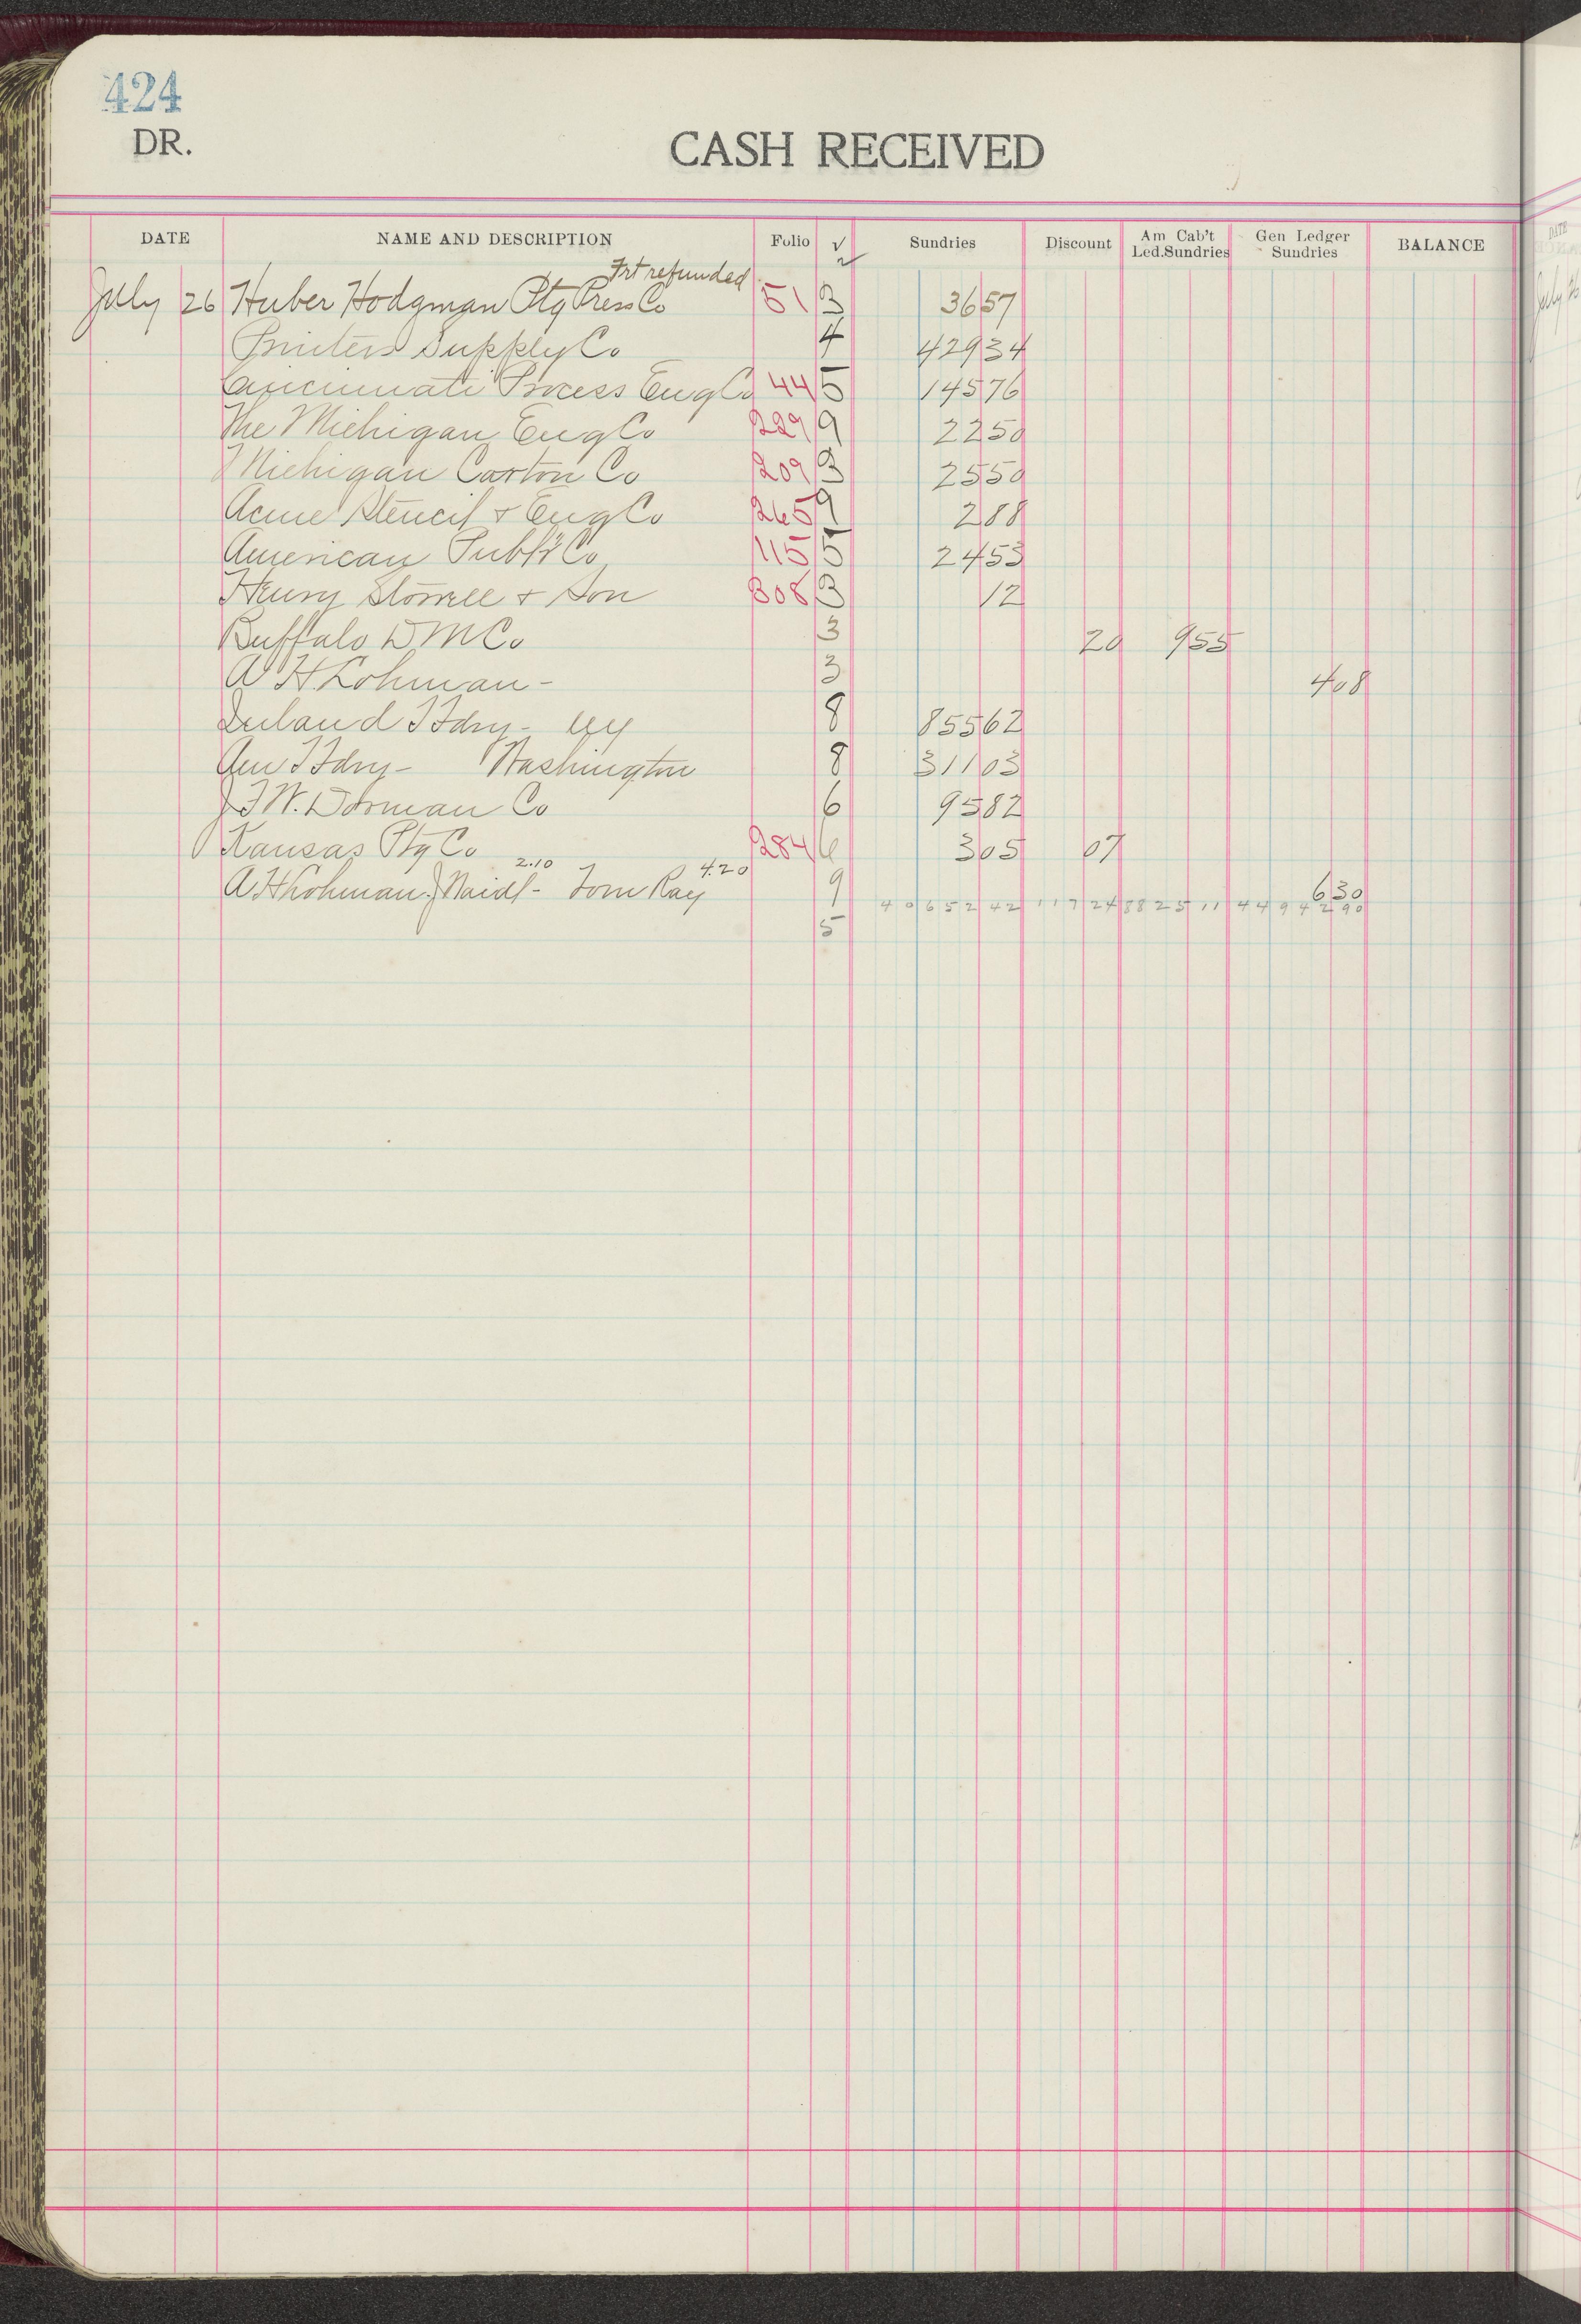 424
DR.
CASH RECEIVED
DATE NAME AND DESCRIPTION Folio √ Sundries Discount Am Cab't Led.Sundries Gen Ledger Sundries BALANCE
Frt refunded
July 26 Huber Hodgman Ptg Press Co 51 3 36 57
Printers Supply Co 4 429 34
Cincinnati Process Eng Co 44 5 145 76
The Michigan Eng Co 229 9 22 50
Michigan Carton Co 209 3 25 50
Acme Stencil & Eng Co 265 9 2 88
American Pub Co 115 5 24 53
Henry & Son 308 3 12
Buffalo D M Co 3 20 9 55
A H Lohman - 3 4 08
Inland T Fdry - 8 855 62
Am T Fdry - Washington 8 311 03
J F W. Dorman Co 6 95 82
Kansas Ptg Co 284 6 3 05 07
2.10 4.20
A H Lohman. J Naidl - Tom Ray 9 6 30
40652 42 117 24 8825 11 4494290
5